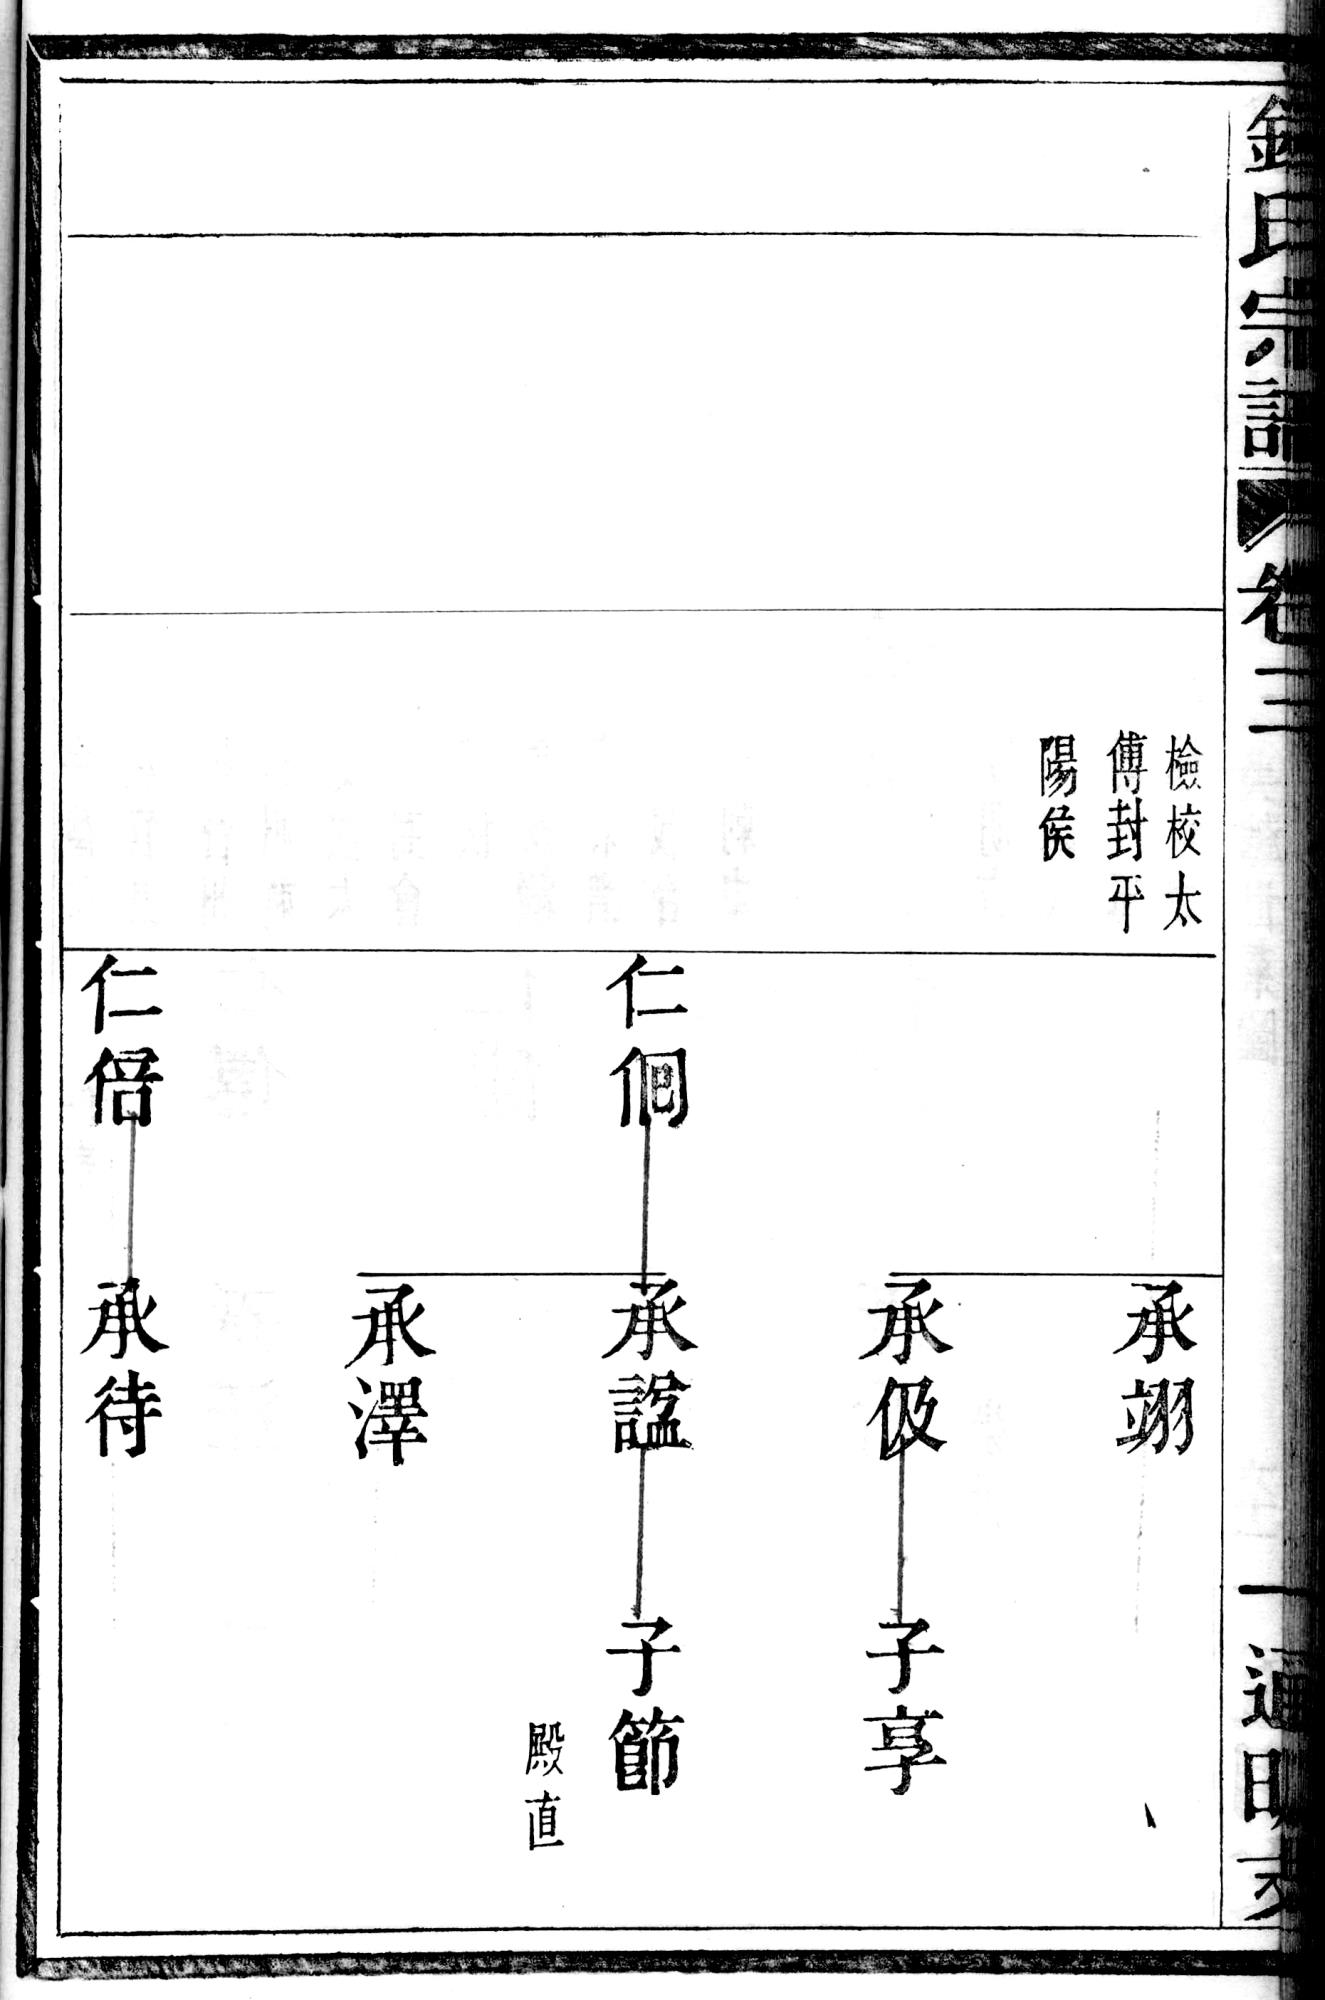 錢氏宗譜
卷三
一
通
檢校太
傅封平
陽侯
承翊
承伋
子享
仁侰
承諡
子節
殿直
承澤
仁倍
承待